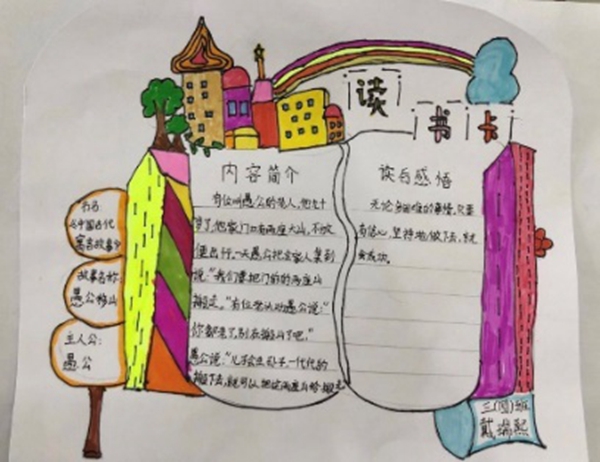 读
书卡
书名:
《中国古代
寓言故事》
故事名称:
愚公移山
主人公:
愚公
内容简介
有位叫愚公的老人,他九十
岁了,他家门口有两座大山,不方
便出行。一天愚公把全家人集到
说:“我们要把门前的两座山
搬走。”有位老头对愚公说:“
你都老了,别在搬山了吧。”
愚公说:“儿子会生孙子一代代的
搬下去,就可以把这两座山给搬走
读后感悟
无论多困难的事情,只要
有信心,坚持地做下去,就
会成功。
三(四)班